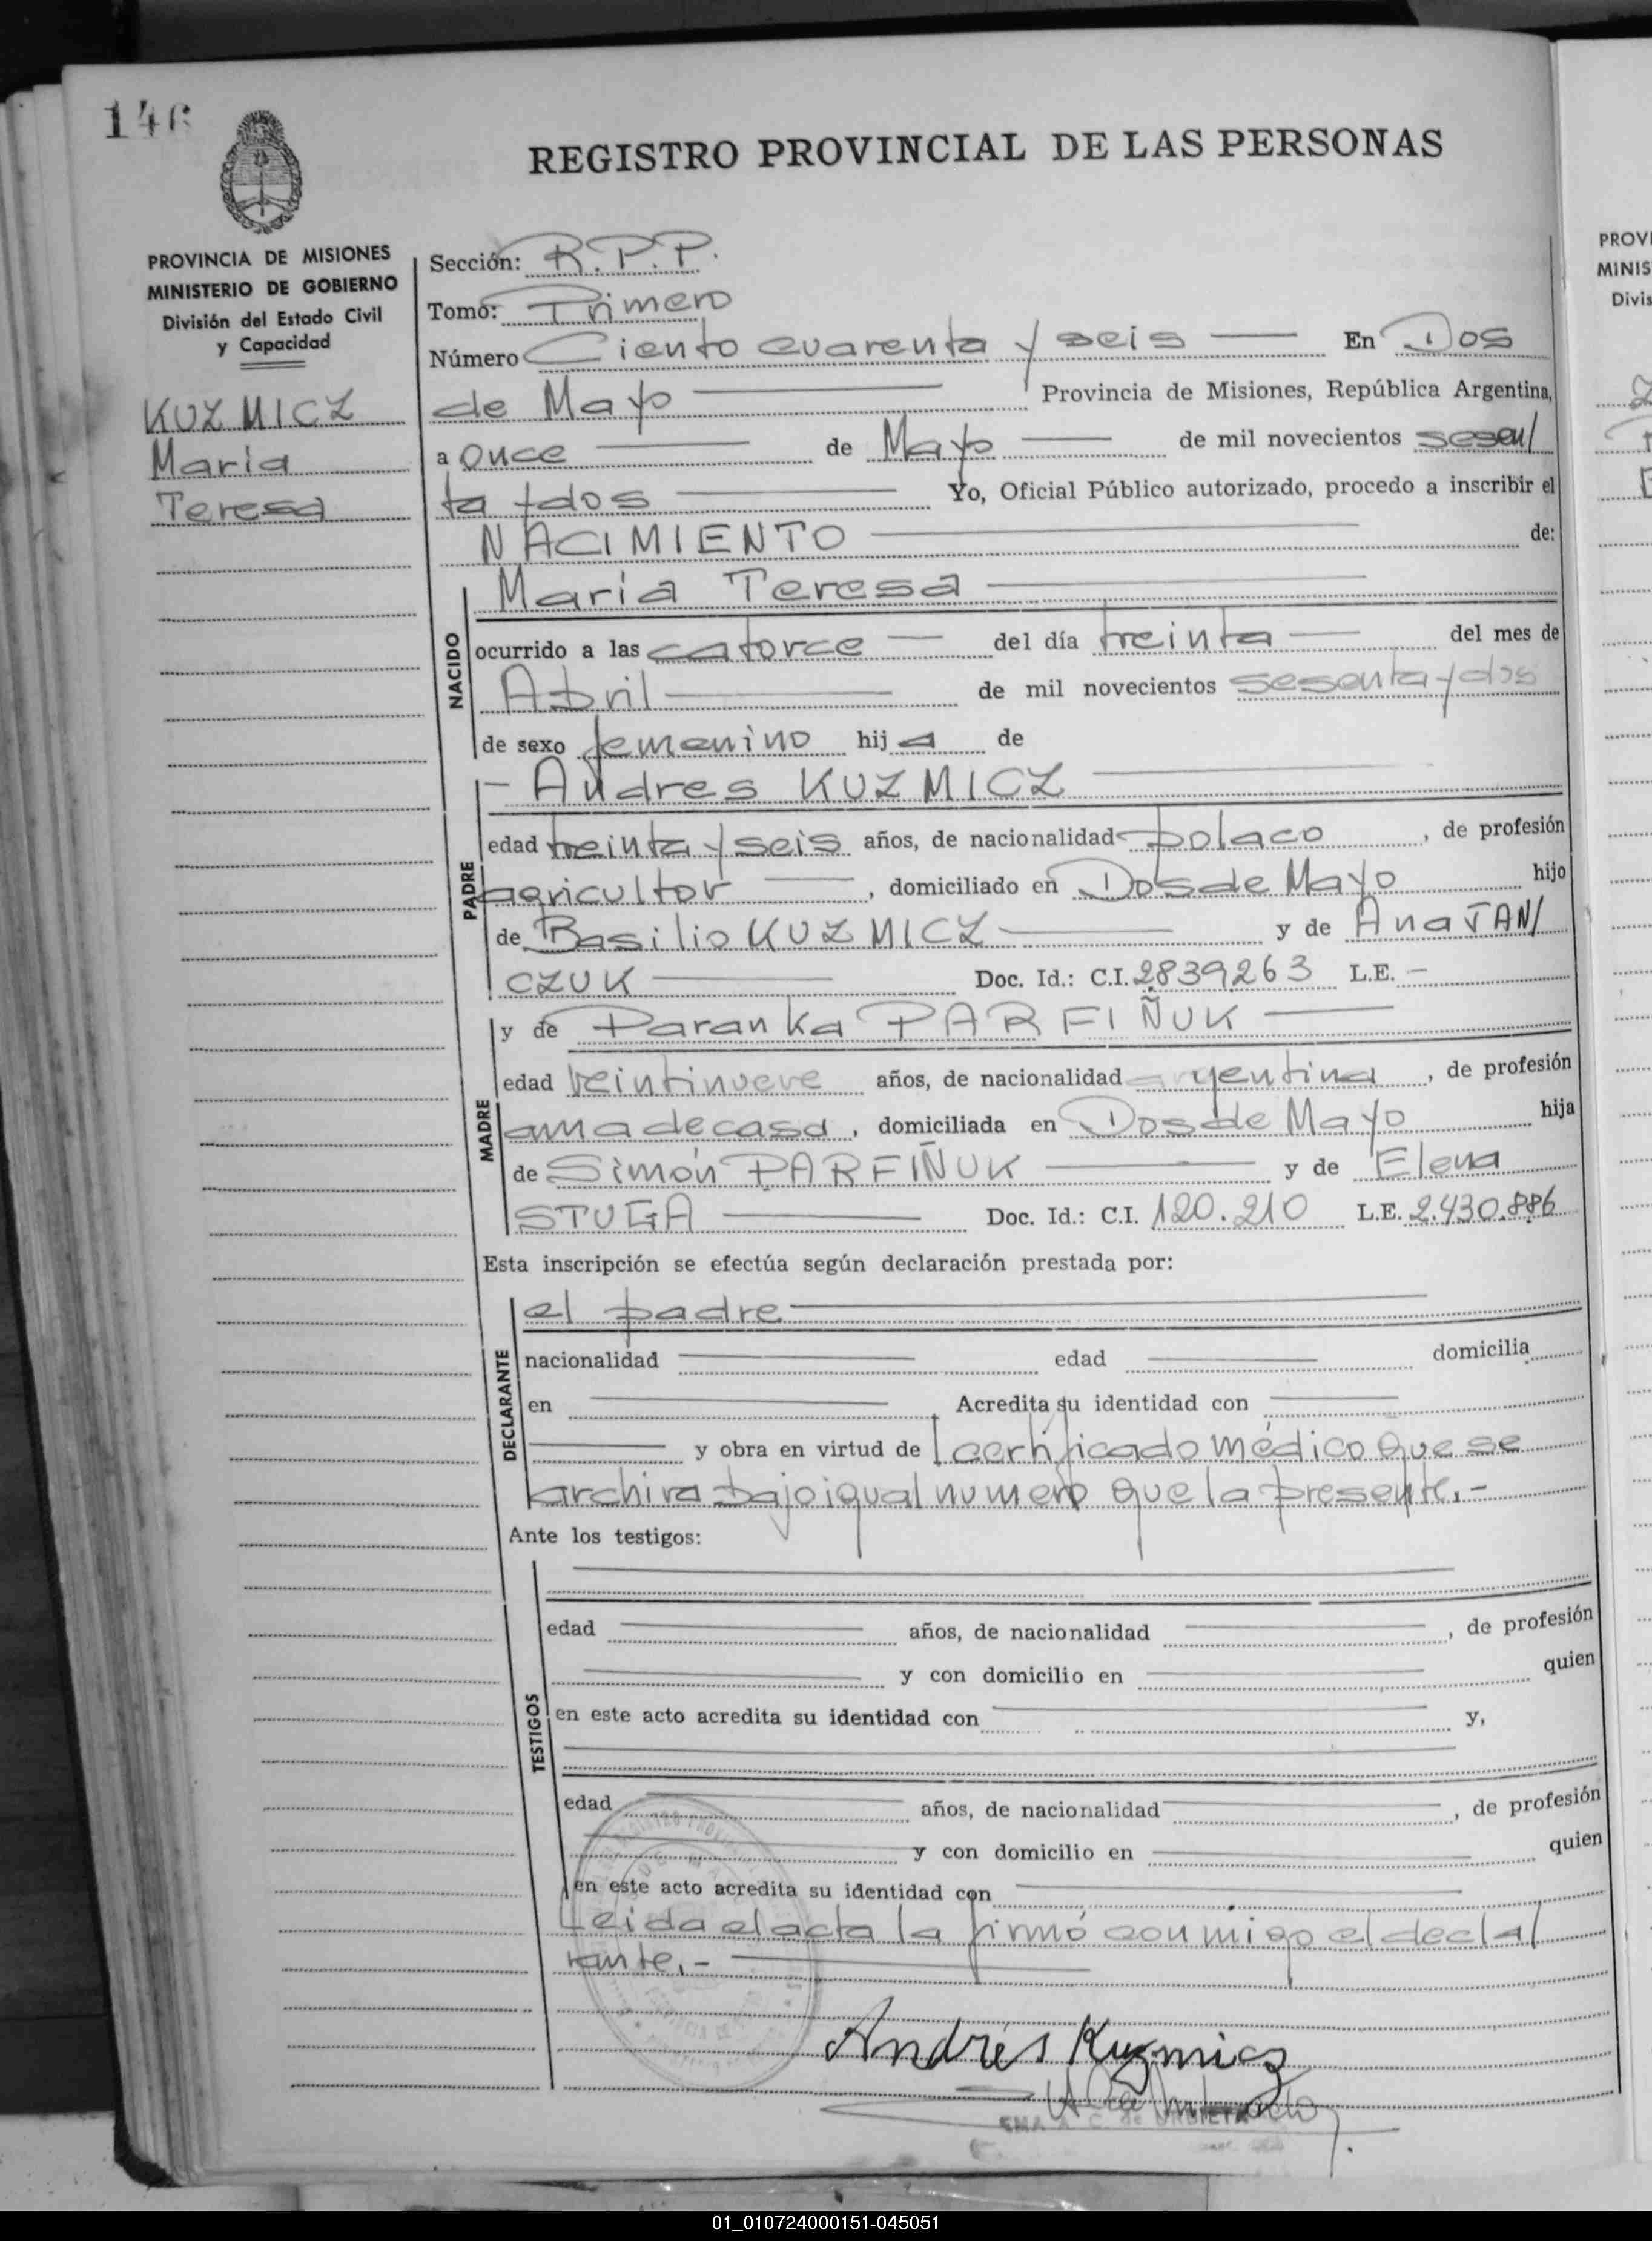 146
REGISTRO PROVINCIAL DE LAS PERSONAS
PROVINCIA DE MISIONES
MINISTERIO DE GOBIERNO
División del Estado Civil
y Capacidad
KUZMICZ
María
Teresa
Sección: R.P.P.
Tomo: Primero
Número Ciento cuarenta y seis En Dos
de Mayo Provincia de Misiones, República Argentina,
a once de Mayo de mil novecientos sesen/
ta y dos Yo, Oficial Público autorizado, procedo a inscribir el
NACIMIENTO de:
María Teresa
NACIDO
ocurrido a las catorce del día treinta del mes de
Abril de mil novecientos sesenta y dos
de sexo femenino hija de
- Andres KUZMICZ
PADRE
edad treinta y seis años, de nacionalidad polaco, de profesión
agricultor, domiciliado en Dos de Mayo hijo
de Basilio KUZMICZ y de Ana JAN/
CZUK Doc. Id.: C.I. 2839263 L.E. -
y de Paranka PARFIÑUK
MADRE
edad veintinueve años, de nacionalidad argentina, de profesión
ama de casa, domiciliada en Dos de Mayo hija
de Simón PARFIÑUK y de Elena
STUGA Doc. Id.: C.I. 120.210 L.E. 2.430.886
Esta inscripción se efectúa según declaración prestada por:
el padre
DECLARANTE
nacionalidad edad domicilia
en Acredita su identidad con
y obra en virtud de certificado médico que se
archiva bajo igual numero que la presente.-
Ante los testigos:
TESTIGOS
edad años, de nacionalidad , de profesión
y con domicilio en quien
en este acto acredita su identidad con y,
edad años, de nacionalidad , de profesión
y con domicilio en quien
en este acto acredita su identidad con
Leida el acta la firmó con migo el decla/
rante.-
Andrés Kuzmicz
PROVI
MINIS
Divis
01_010724000151-045051